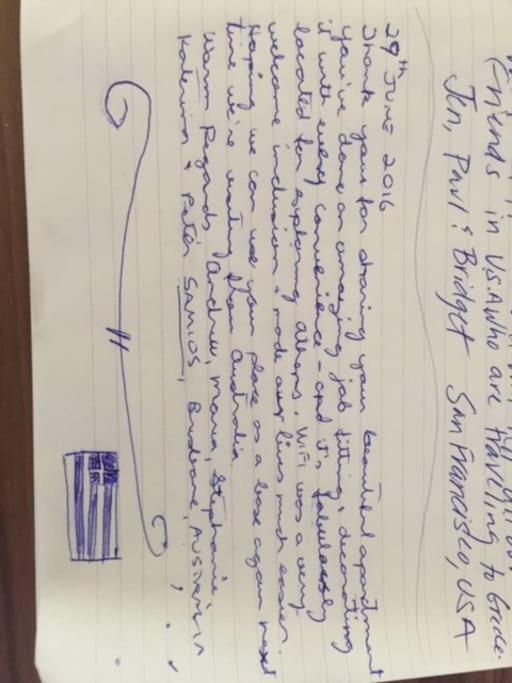 friends in U.S.A who are traveling to Greece.
Jen, Paul & Bridget San Francisco, USA
29th JUNE 2016
Thank you for sharing your beautiful apartment
You've done an amazing job fitting & decorating
it with every convenience - and it's fabulously
located for exploring Athens. WiFi was a very
welcome inclusion & made our lives much easier.
Hoping we can use your place as a base again next
time we're visiting from Australia.
Warm Regards, Andrew, Maria, Stephanie,
Katerina & Peter SAMIOS, Brisbane AUSTRALIA